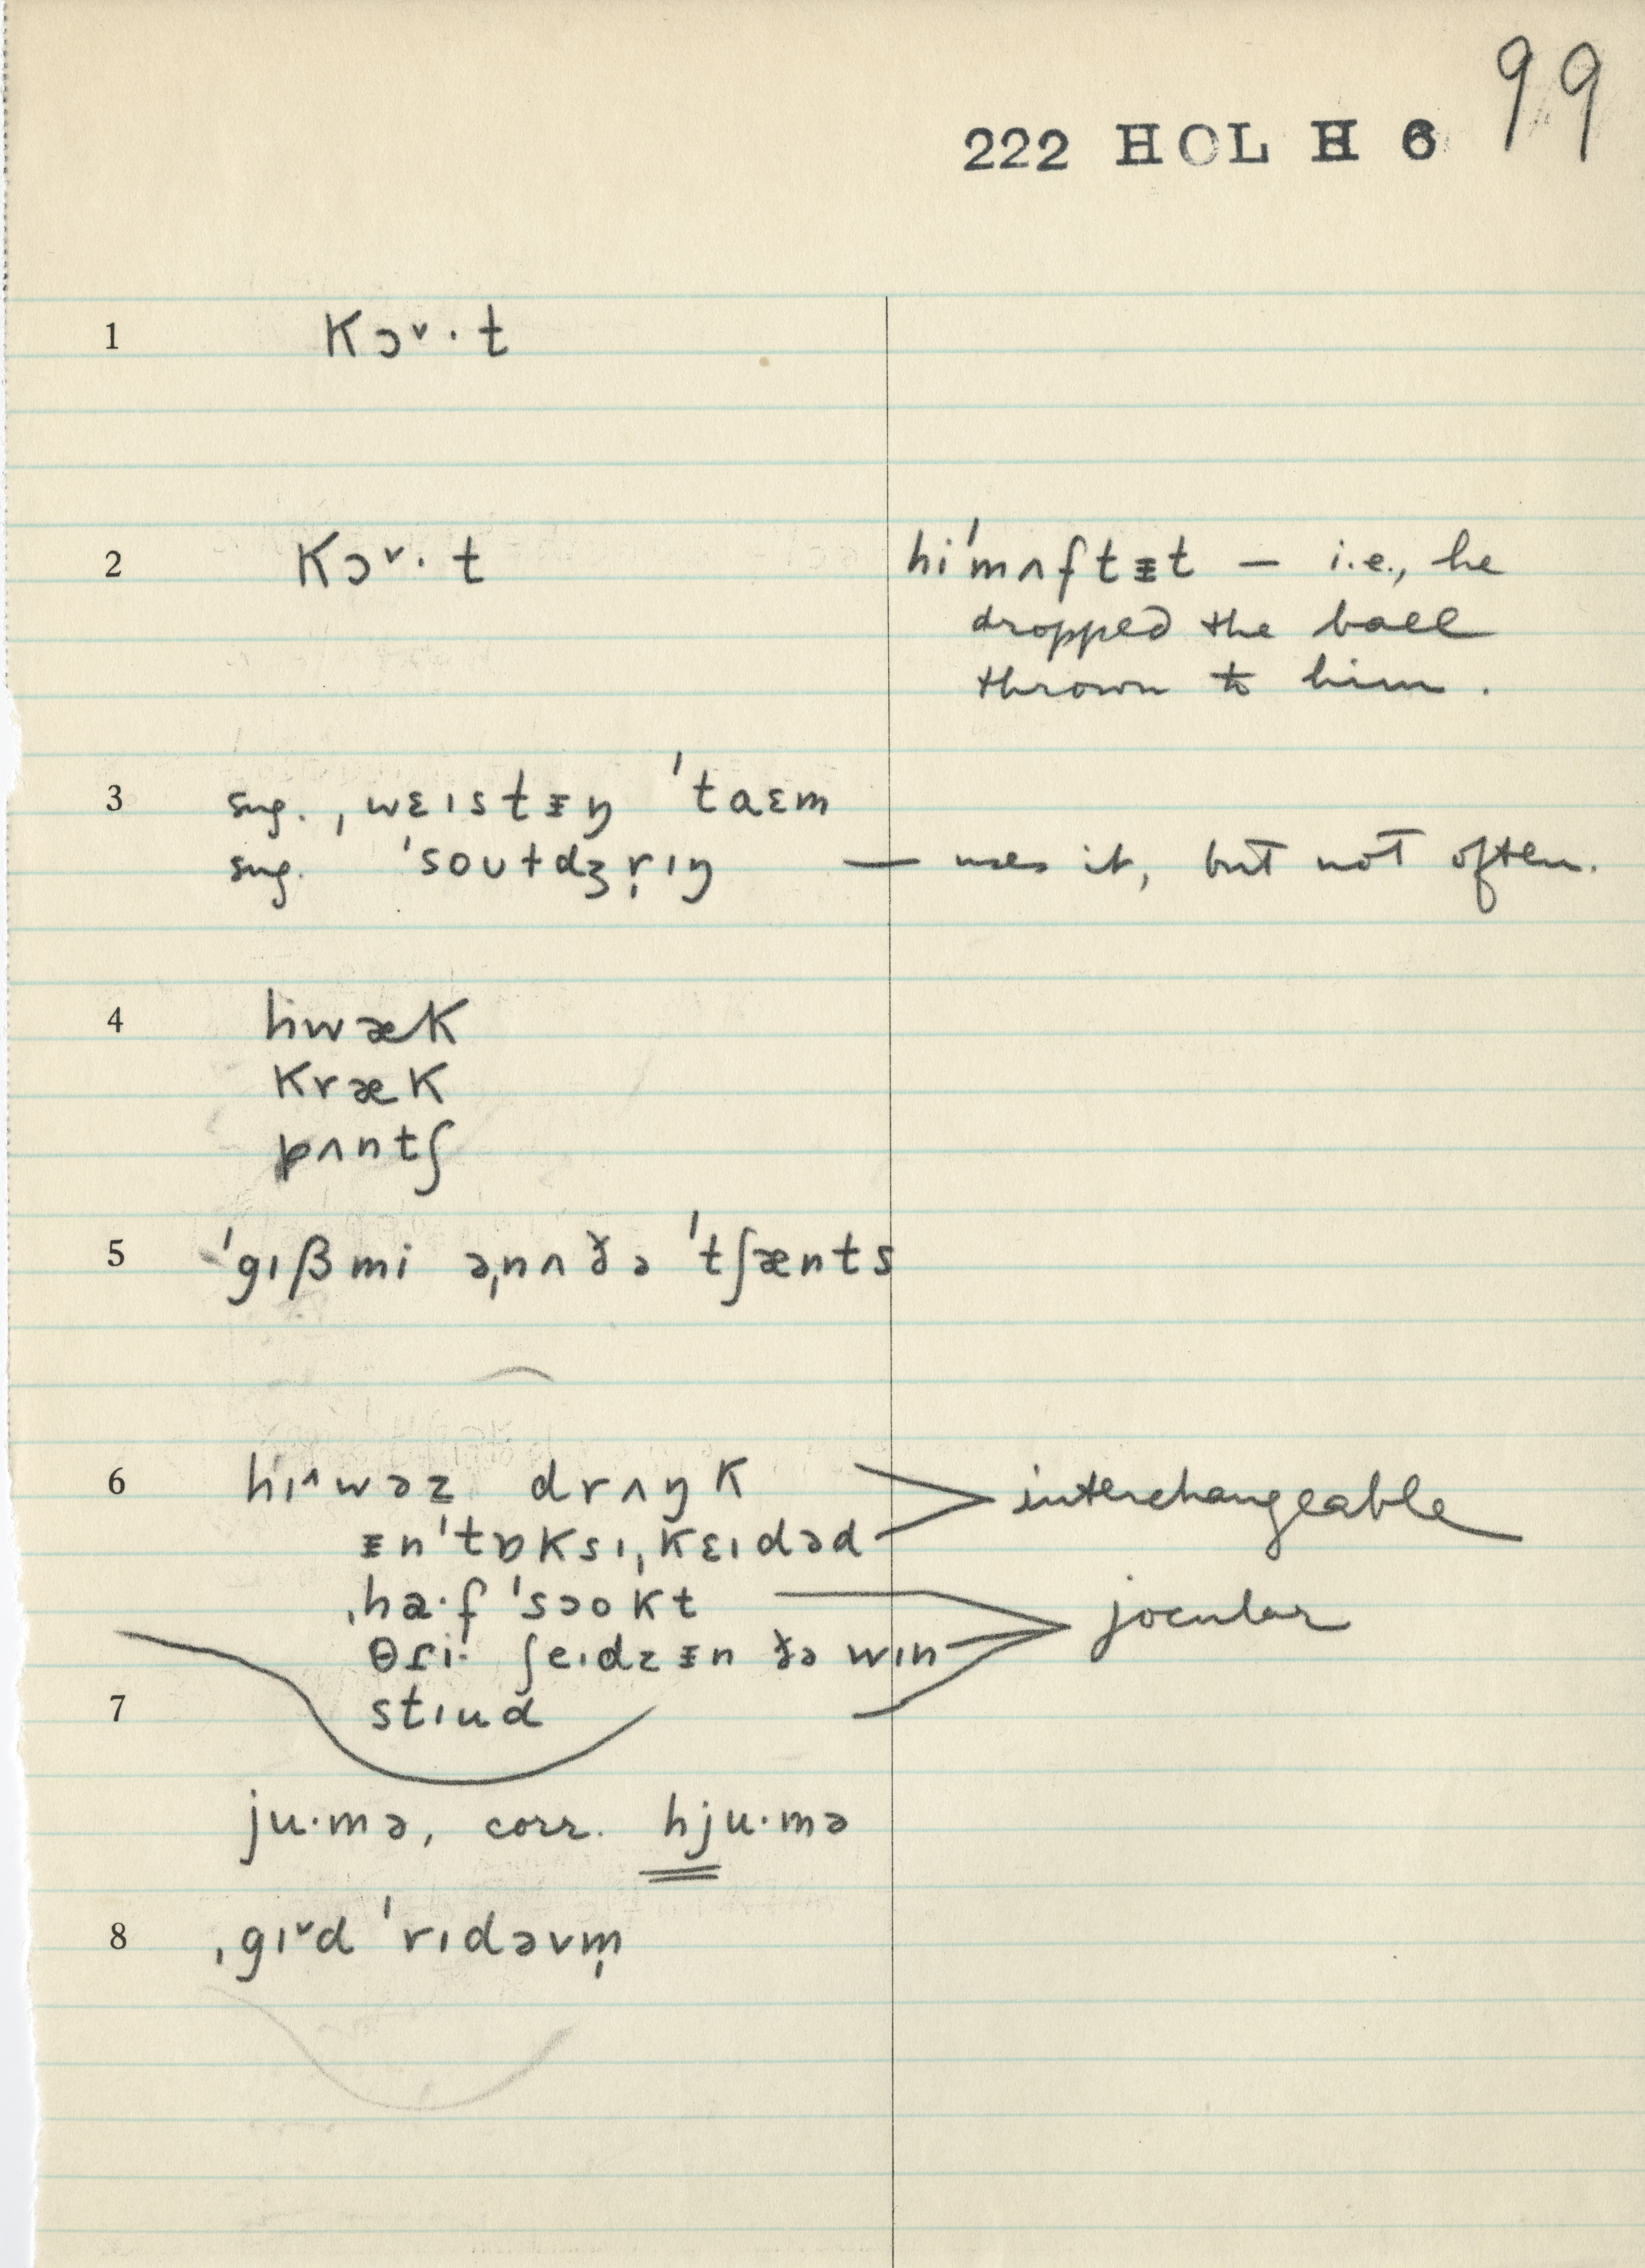 99
222 HOL H 6
1 kɔˇ·t
2 kɔˇ·t hi'mʌftᵻt — i.e., he
dropped the ball
thrown to him.
3 sug. ˌwɛɪstᵻŋ 'taɛm
sug. 'soʊtdʒr̩ɪŋ — uses it, but not often.
4 hwæk
kræk
pʌntʃ
5 'gɪβmi əˌnʌðə 'tʃænts
6 hɪ^wəz drʌŋk
ᵻn'tɒksɪˌkɛɪdəd
interchangeable
ˌha·f 'sɔokt
jocular
θɾi· ʃeɪdzᵻn ðə wɪn
7 stɪud
ju·mə, corr. hju·mə
8 ˌgɪˇd 'rɪdəvm̩